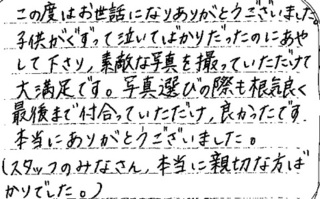 この度はお世話になりありがとうございました
子供がぐずって泣いてばかりだったのにあや
して下さり、素敵な写真を撮っていただけて
大満足です。写真選びの際も根気良く
最後まで付合っていただけ、良かったです
本当にありがとうございました。
(スタッフのみなさん、本当に親切な方ば
かりでした。)